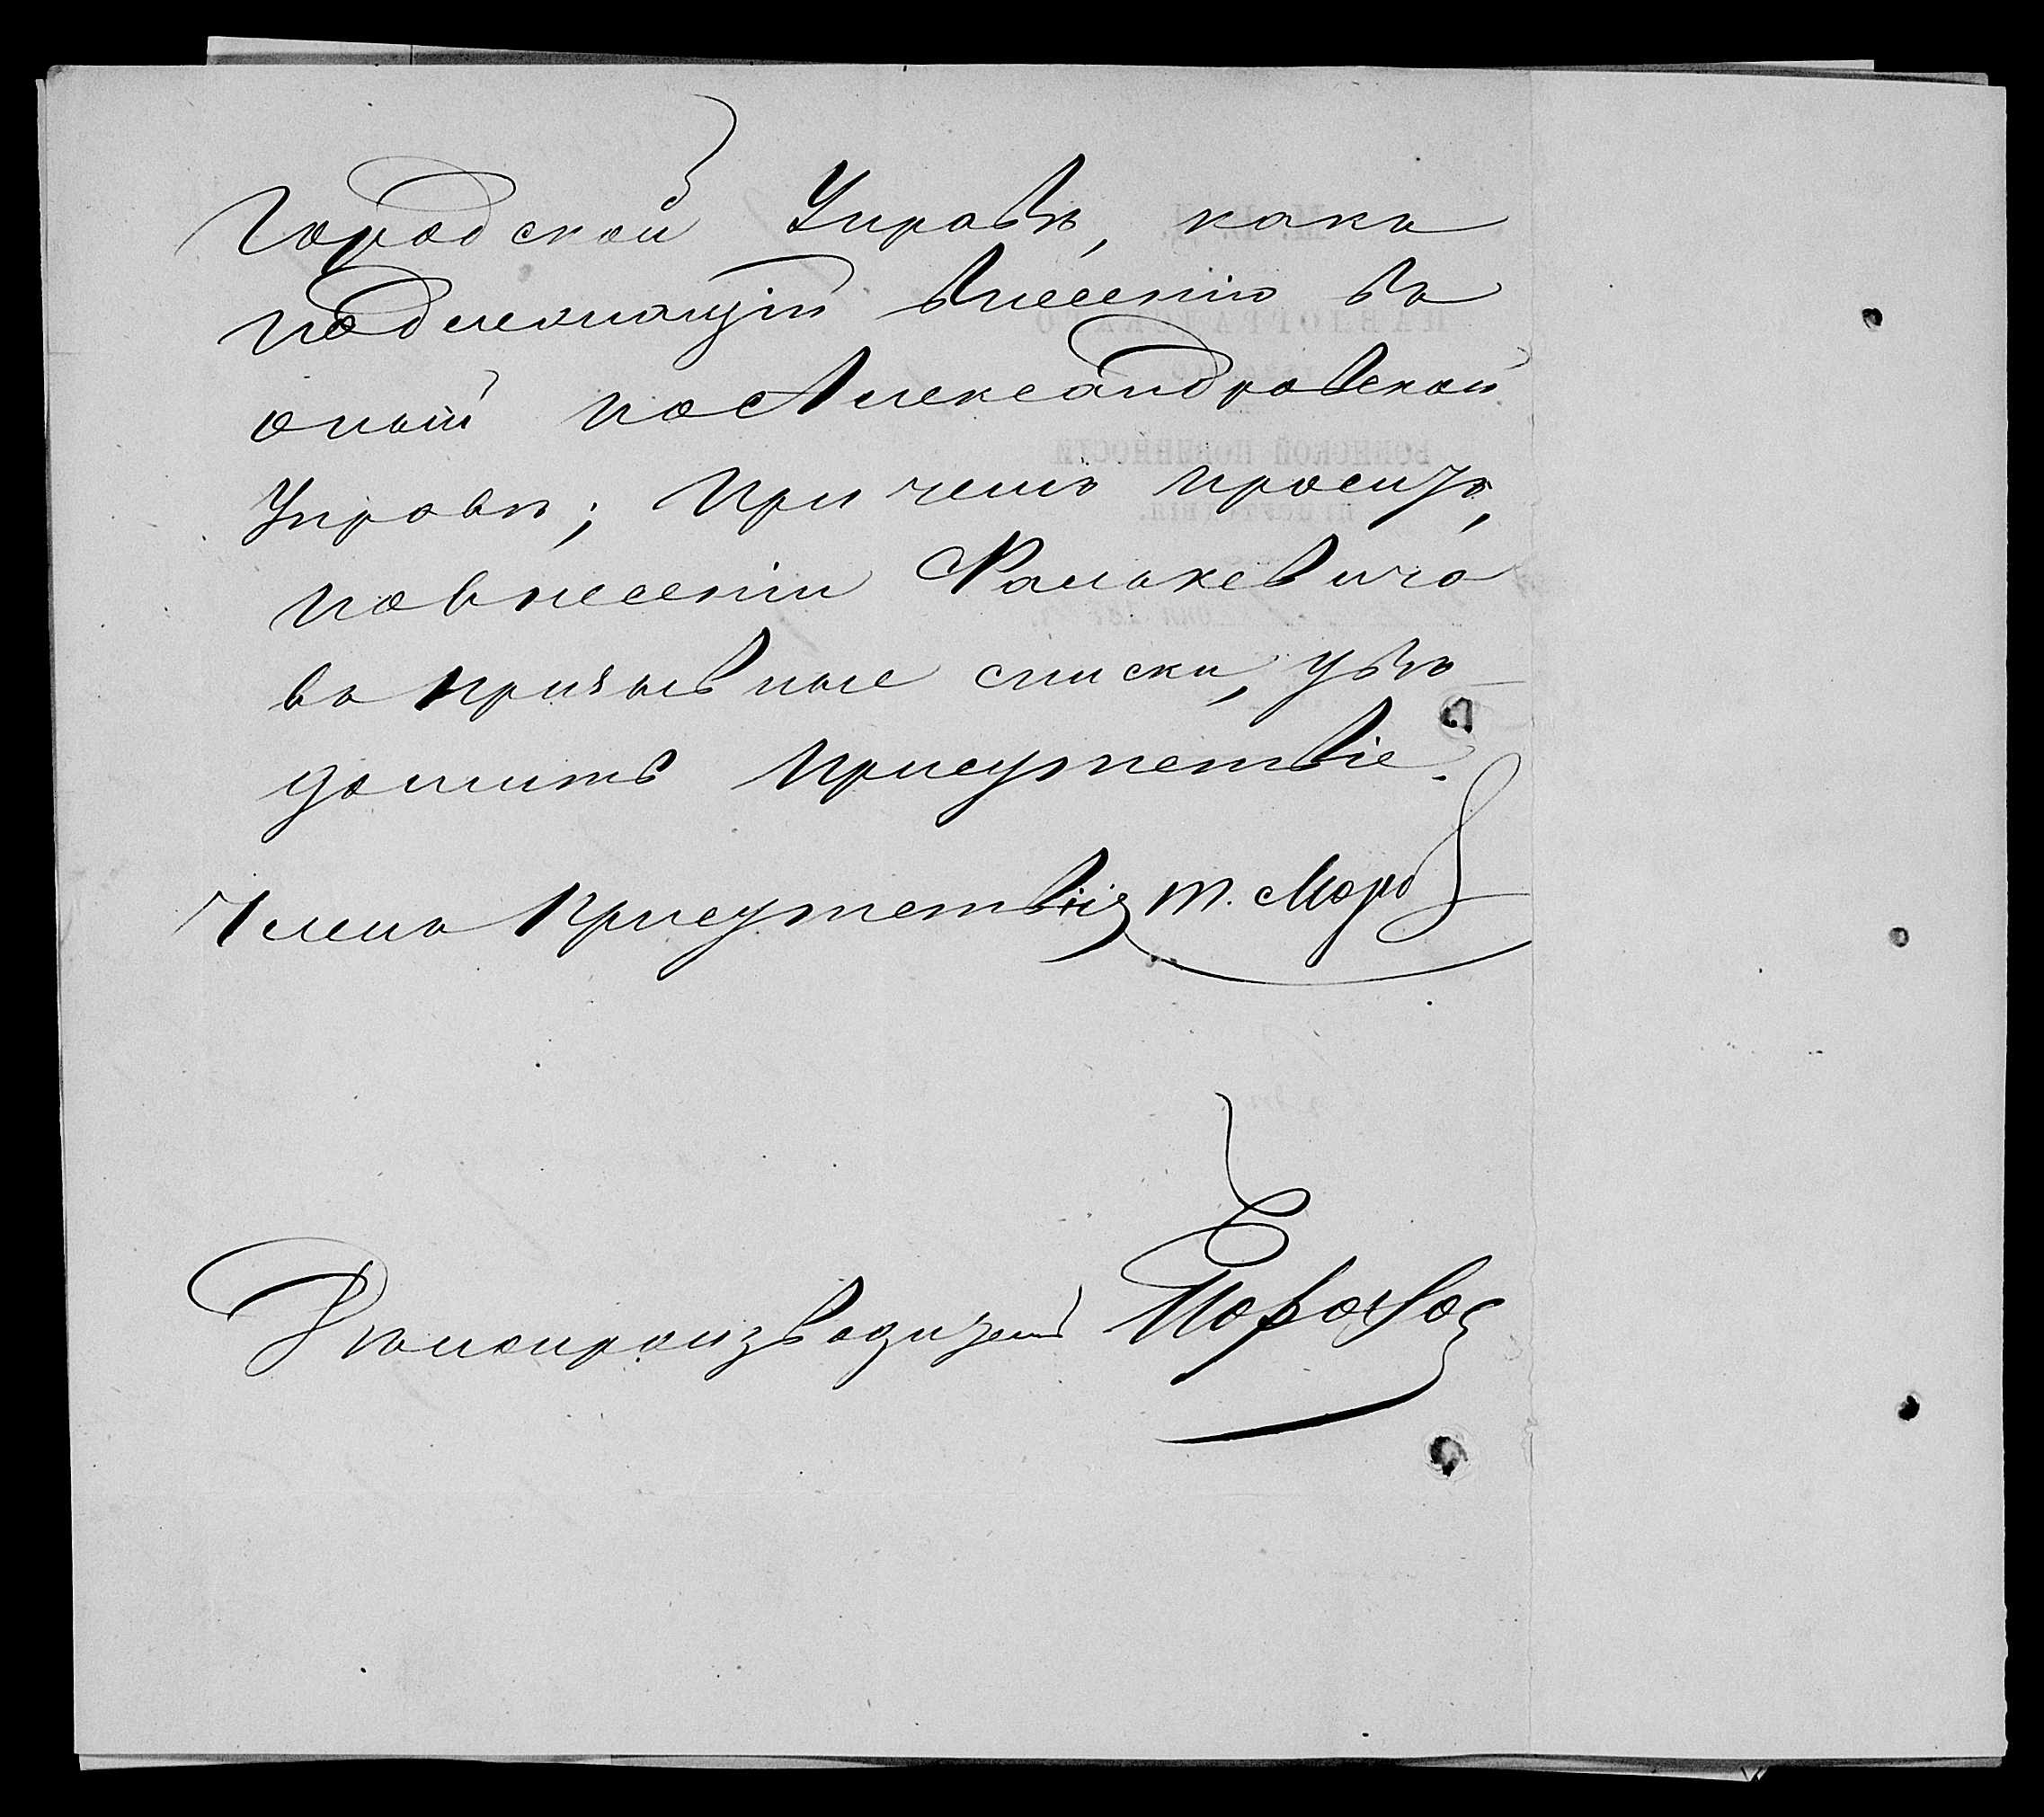 Городской Управѣ, какъ
подлежащій внесенію въ
оный по Александровской
Управѣ; при чемъ проситъ,
по внесеніи Фалькевича
въ призывные списки, увѣ-
домить присутствіе.
Членъ Присутствія
Дѣлопроизводитель